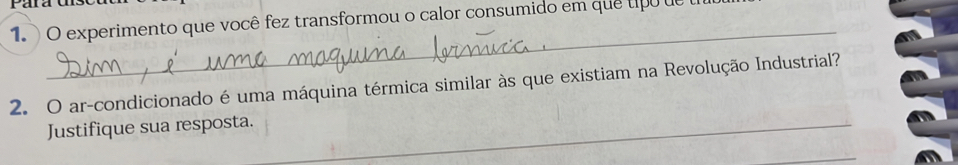 Para discutir e
1. O experimento que você fez transformou o calor consumido em que tipo de
Sim, é uma maquina termica.
2. O ar-condicionado é uma máquina térmica similar às que existiam na Revolução Industrial?
Justifique sua resposta.